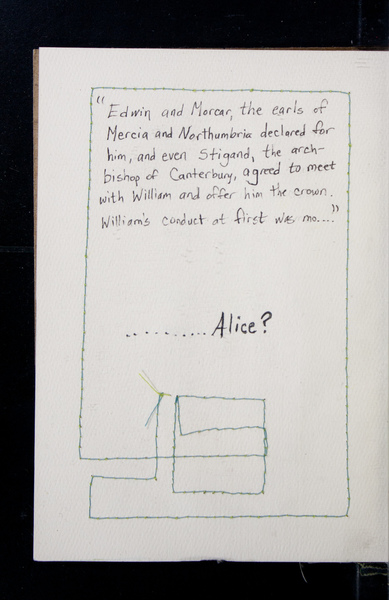 "Edwin and Morcar, the earls of
Mercia and Northumbria declared for
him, and even Stigand, the arch-
bishop of Canterbury, agreed to meet
with William and offer him the crown.
William's conduct at first was mo...."
..........Alice?